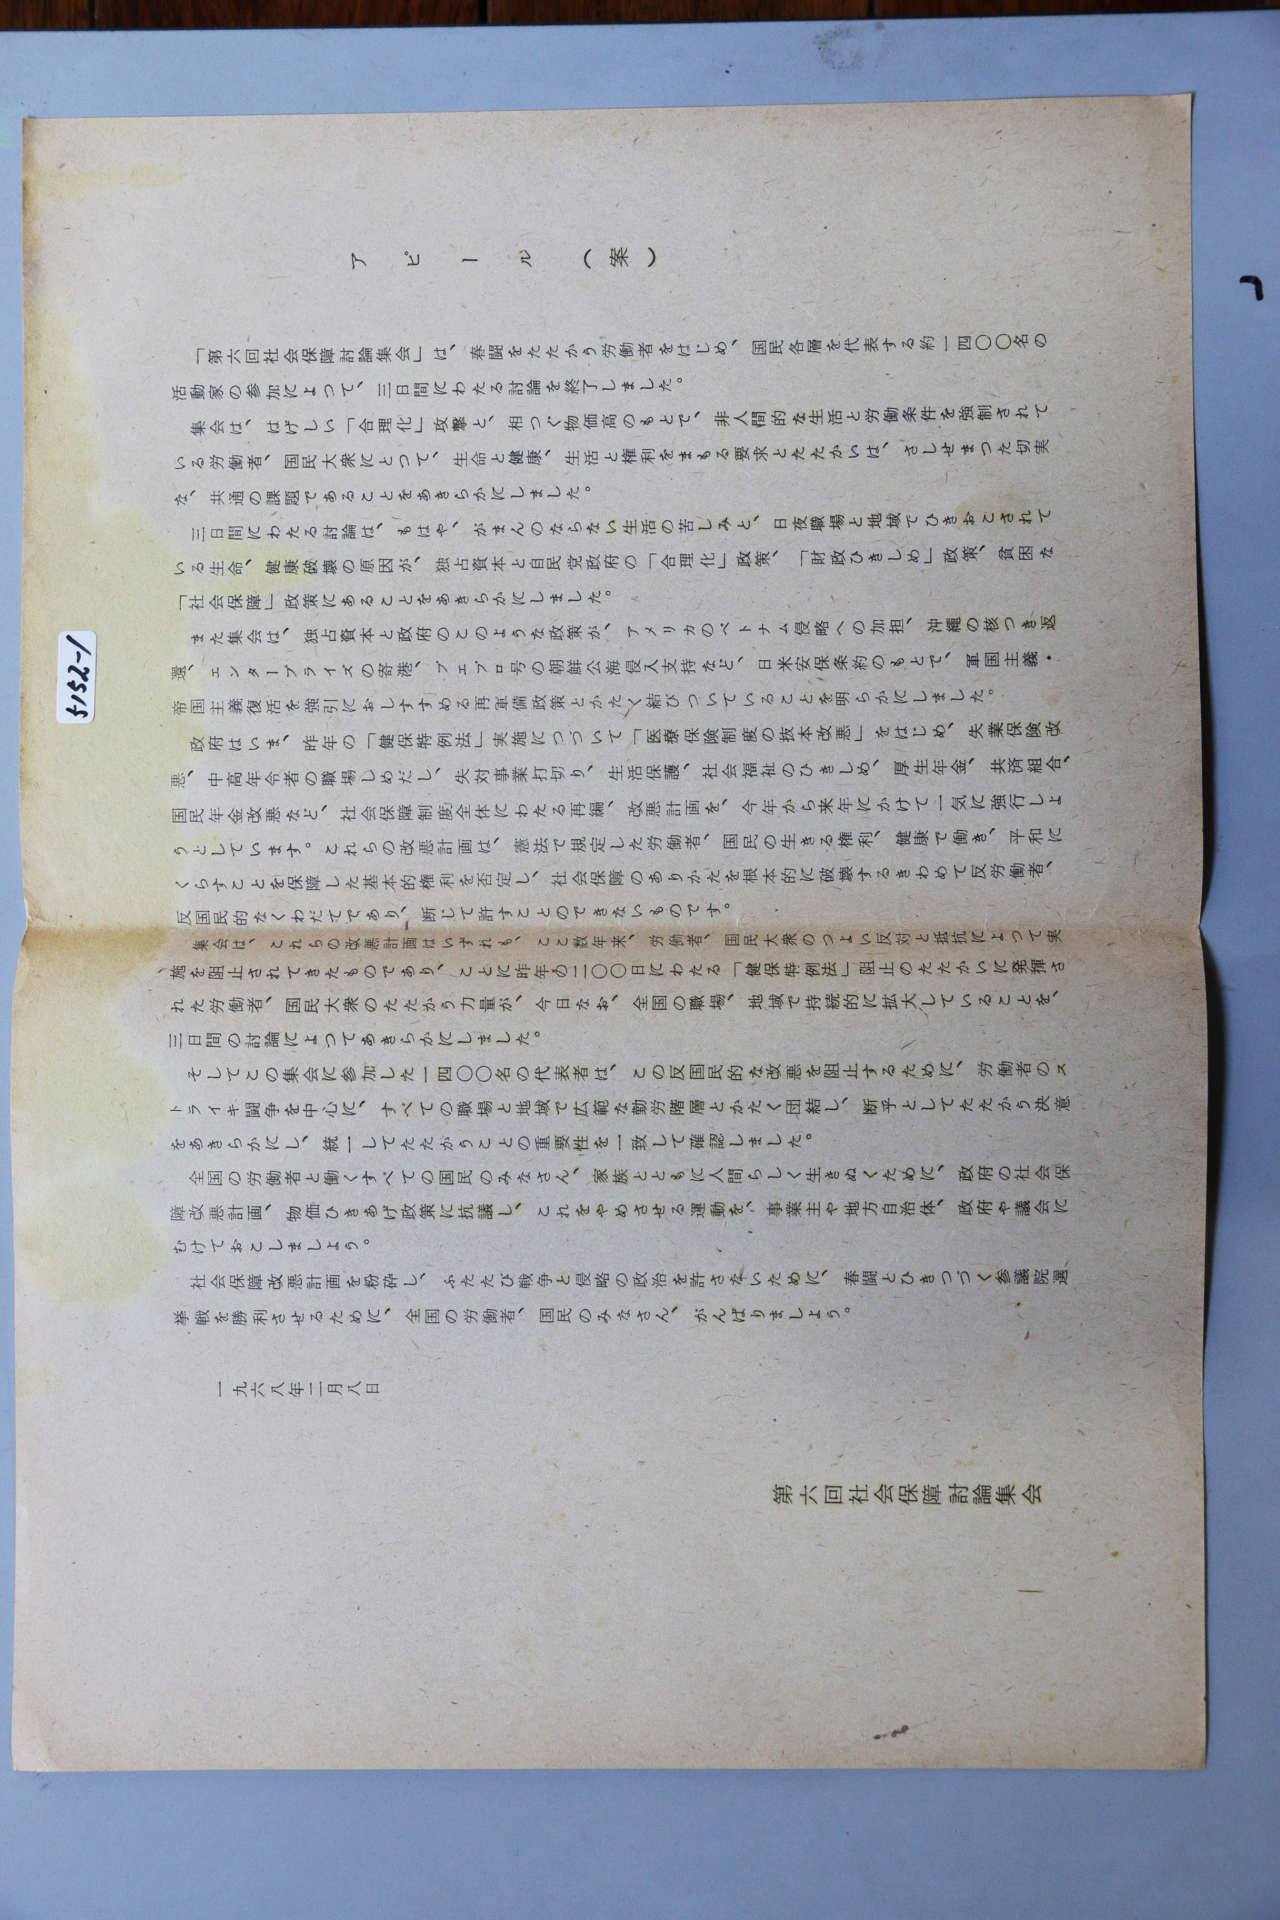 アピール（案）
「第六回社会保障討論集会」は、春闘をたたかう労働者をはじめ、国民各層を代表する約一四〇〇名の
活動家の参加によつて、三日間にわたる討論を終了しました。
集会は、はげしい「合理化」攻撃と、相つぐ物価高のもとで、非人間的な生活と労働条件を強制されて
いる労働者、国民大衆にとつて、生命と健康、生活と権利をまもる要求とたたかいは、さしせまつた切実
な、共通の課題であることをあきらかにしました。
三日間にわたる討論は、もはや、がまんのならない生活の苦しみと、日夜職場と地域でひきおこされて
いる生命、健康破壊の原因が、独占資本と自民党政府の「合理化」政策、「財政ひきしめ」政策、貧困な
「社会保障」政策にあることをあきらかにしました。
また集会は、独占資本と政府のこのような政策が、アメリカのベトナム侵略への加担、沖縄の核つき返
還、エンタープライズの寄港、プエブロ号の朝鮮公海侵入支持など、日米安保条約のもとで、軍国主義・
帝国主義復活を強引におしすすめる再軍備政策とかたく結びついていることを明らかにしました。
政府はいま、昨年の「健保特例法」実施につづいて「医療保険制度の抜本改悪」をはじめ、失業保険改
悪、中高年令者の職場しめだし、失対事業打切り、生活保護、社会福祉のひきしめ、厚生年金、共済組合、
国民年金改悪など、社会保障制度全体にわたる再編、改悪計画を、今年から来年にかけて一気に強行しよ
うとしています。これらの改悪計画は、憲法で規定した労働者、国民の生きる権利、健康で働き、平和に
くらすことを保障した基本的権利を否定し、社会保障のありかたを根本的に破壊するきわめて反労働者、
反国民的なくわだてであり、断じて許すことのできないものです。
集会は、これらの改悪計画はいずれも、ここ数年来、労働者、国民大衆のつよい反対と抵抗によつて実
施を阻止されてきたものであり、ことに昨年の二〇〇日にわたる「健保特例法」阻止のたたかいに発揮さ
れた労働者、国民大衆のたたかう力量が、今日なお、全国の職場、地域で持続的に拡大していることを、
三日間の討論によつてあきらかにしました。
そしてこの集会に参加した一四〇〇名の代表者は、この反国民的な改悪を阻止するために、労働者のス
トライキ闘争を中心に、すべての職場と地域で広範な勤労階層とかたく団結し、断乎としてたたかう決意
をあきらかにし、統一してたたかうことの重要性を一致して確認しました。
全国の労働者と働くすべての国民のみなさん、家族とともに人間らしく生きぬくために、政府の社会保
障改悪計画、物価ひきあげ政策に抗議し、これをやめさせる運動を、事業主や地方自治体、政府や議会に
むけておこしましよう。
社会保障改悪計画を粉砕し、ふたたび戦争と侵略の政治を許さないために、春闘とひきつづく参議院選
挙戦を勝利させるために、全国の労働者、国民のみなさん、がんばりましよう。
一九六八年二月八日
第六回社会保障討論集会
5152-1